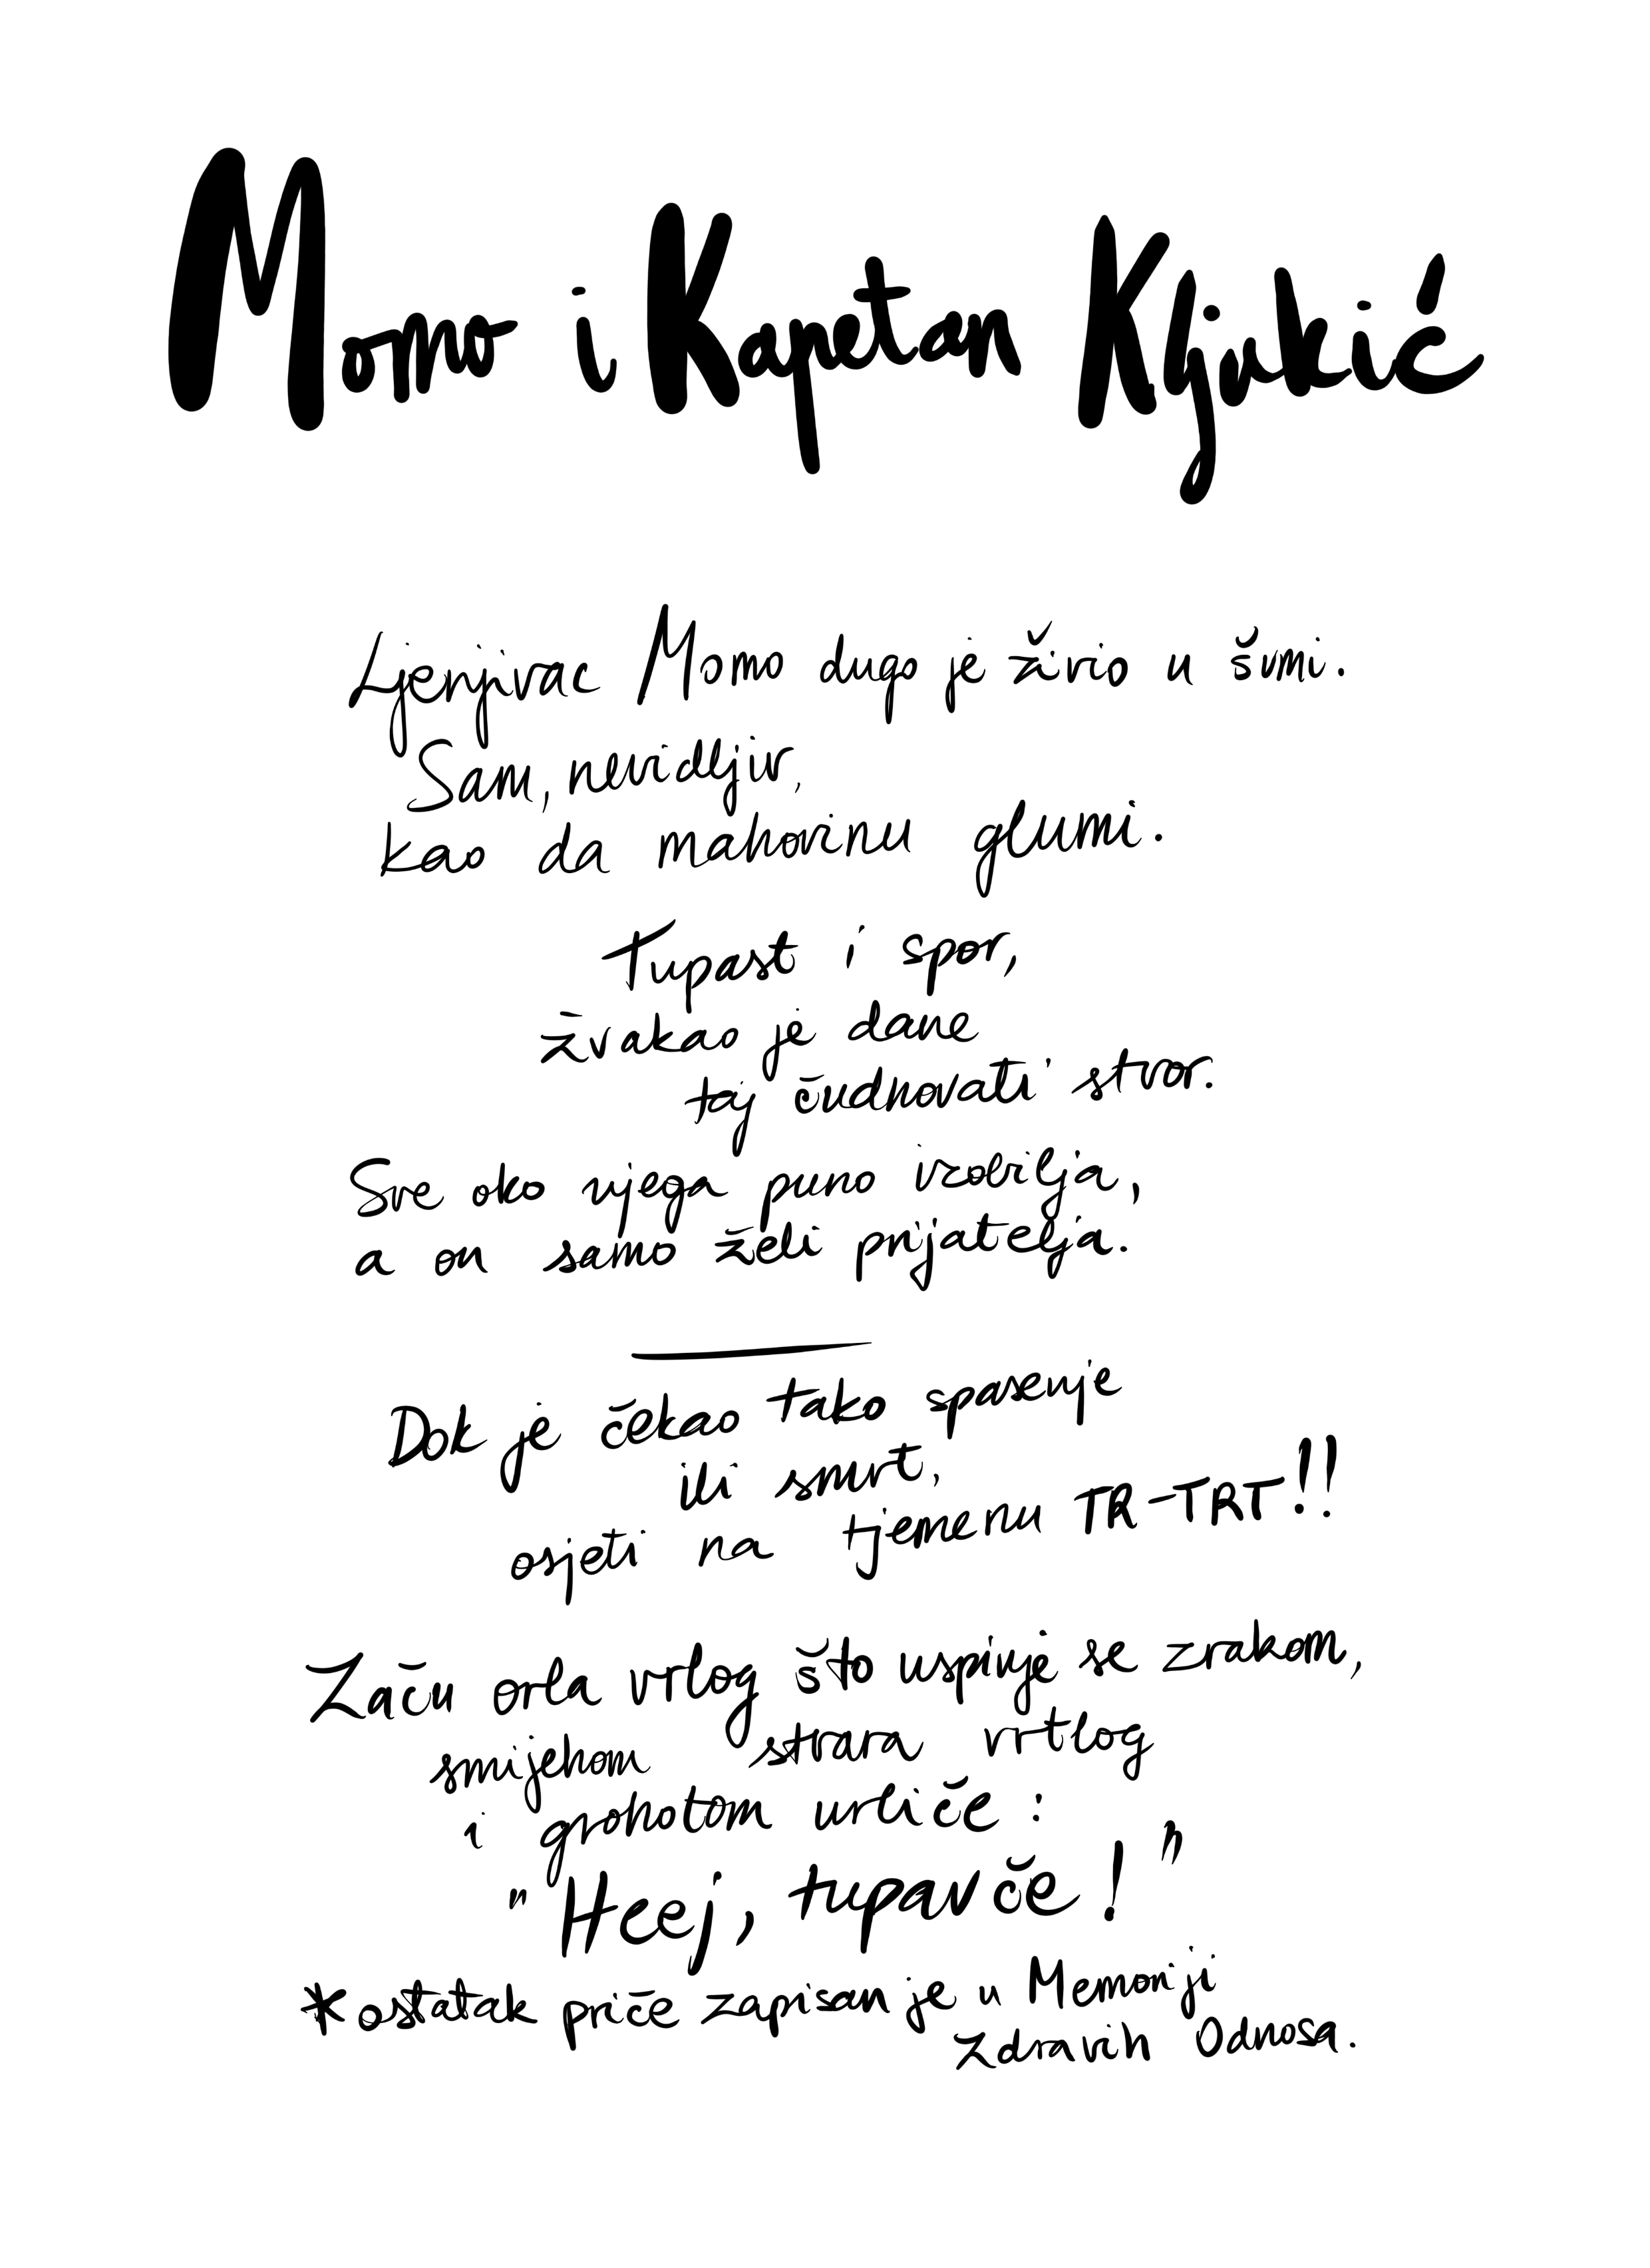 Momo i Kapetan Kljukić
Ljenjivac Momo dugo je živio u šumi.
Sam, nevidljiv,
kao da mahovinu glumi.
Tupast i spor,
žvakao je dane
taj čudnovati stvor.
Sve oko njega puno izobilja,
a on samo želi prijatelja.
Dok je čekao tako spasenje
ili smrt,
osjeti na tjemenu TR-TRT!!
Začu orla vrlog što uspinje se zrakom,
smijehom stvara vrtlog
i grohotom urliče:
"Heej, tupavče!"
*ostatak priče zapisan je u Memoriji
Zdravih Odnosa.